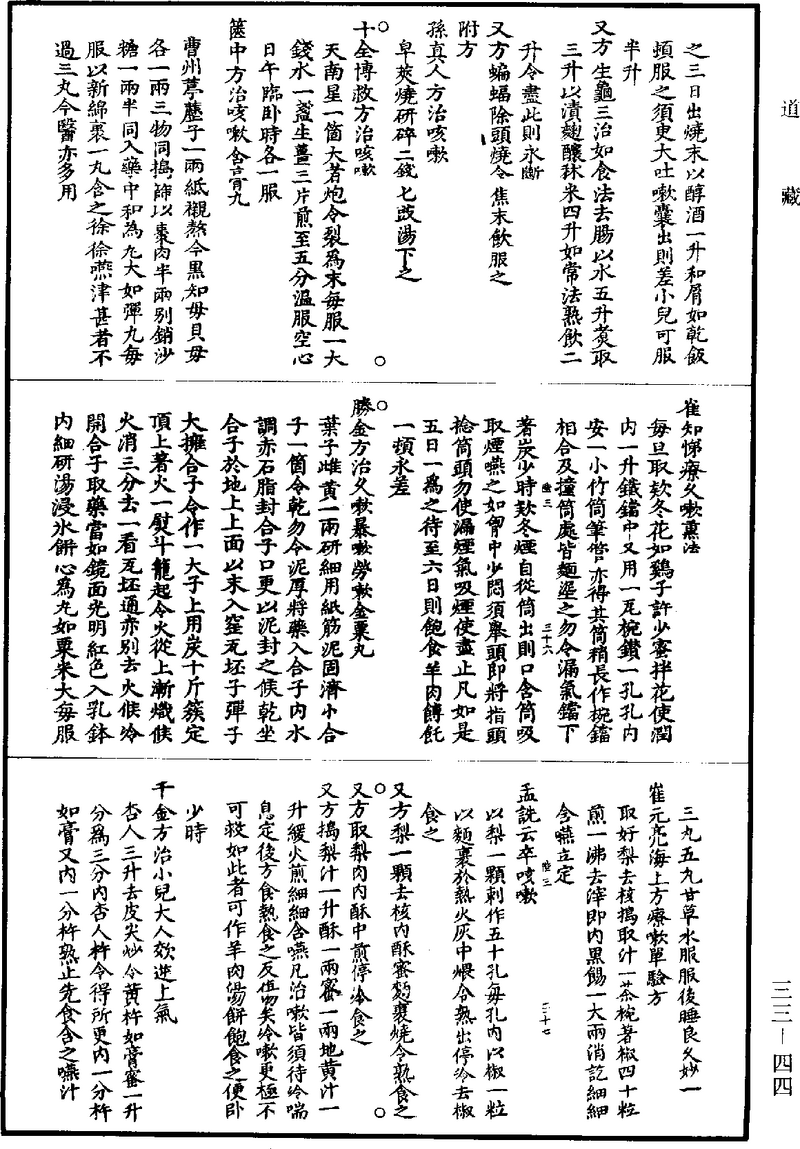 道藏
之三日出燒末以醇酒一升和屑如乾飯
頓服之須臾大吐嗽囊出則差小兒可服
半升
又方生龜三治如食法去腸以水五升煑取
三升以漬麴釀秫米四升如常法熟飲二
升令盡此則永斷
又方蝙蝠除頭燒令焦末飲服之
附方
孫真人方治咳嗽
皁莢燒研碎二錢匕豉湯下之
十全博救方治咳嗽
天南星一箇大者炮令裂爲末每服一大
錢水一盞生薑三片煎至五分溫服空心
日午臨卧時各一服
篋中方治咳嗽含膏丸
曹州葶藶子一兩紙襯熬令黑知母貝母
各一兩三物同搗篩以棗肉半兩别銷沙
糖一兩半同入藥中和為丸大如彈丸每
服以新綿裹一丸含之徐徐嚥津甚者不
過三丸今醫亦多用
崔知悌療久嗽熏法
每旦取欵冬花如雞子許少蜜拌花使潤
内一升鐵鐺中又用一瓦椀鑽一孔孔内
安一小竹筒筆管亦得其筒稍長作椀鐺
相合及撞筒處皆麵塗之勿令漏氣鐺下
著炭少時欵冬煙自從筒出則口含筒吸
取煙嚥之如胷中少悶須舉頭即將指頭
捻筒頭勿使漏煙氣吸煙使盡止凡如是
五日一爲之待至六日則飽食羊肉餺飥
一頓永差
勝金方治久嗽暴嗽勞嗽金粟丸
葉子雌黄一兩研細用紙筋泥固濟小合
子一箇令乾勿令泥厚將藥入合子内水
調赤石脂封合子口更以泥封之候乾坐
合子於地上上面以末入窑瓦坯子彈子
大擁合子令作一大子上用炭十斤簇定
頂上著火一熨斗籠起令火從上漸熾候
火消三分去一看瓦坯通赤别去火候冷
開合子取藥當如鏡面光明紅色入乳鉢
内細研湯浸氷餅心爲丸如粟米大每服
三丸五丸甘草水服服後睡良久妙一
崔元亮海上方療嗽單驗方
取好梨去核搗取汁一茶椀著椒四十粒
煎一沸去滓即内黑餳一大兩消訖細細
含嚥立定
孟詵云卒咳嗽
以梨一顆刺作五十孔每孔内以椒一粒
以麵裹於熱火灰中煨令熟出停冷去椒
食之
又方梨一顆去核内酥蜜麪裹燒令熟食之
又方取梨肉内酥中煎停冷食之
又方搗梨汁一升酥一兩蜜一兩地黄汁一
升緩火煎細細含嚥凡治嗽皆須待冷喘
息定後方食熱食之反傷矣冷嗽更極不
可救如此者可作羊肉湯餅飽食之便卧
少時
千金方治小兒大人欬逆上氣
杏人三升去皮尖炒令黄杵如膏蜜一升
分爲三分内杏人杵令得所更内一分杵
如膏又内一分杵熟止先食含之嚥汁
三三—四四